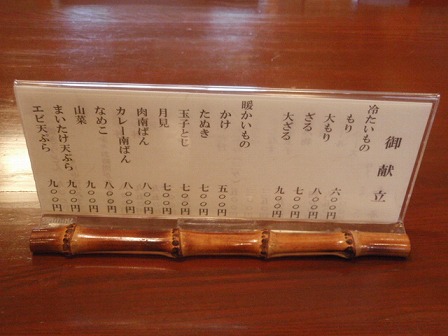 御献立
冷たいもの
もり 六〇〇円
大もり 八〇〇円
ざる 七〇〇円
大ざる 九〇〇円
暖かいもの
かけ 五〇〇円
たぬき 七〇〇円
玉子とじ 七〇〇円
月見 七〇〇円
肉南ばん 八〇〇円
カレー南ばん 八〇〇円
なめこ 八〇〇円
山菜 九〇〇円
まいたけ天ぷら 九〇〇円
エビ天ぷら 九〇〇円